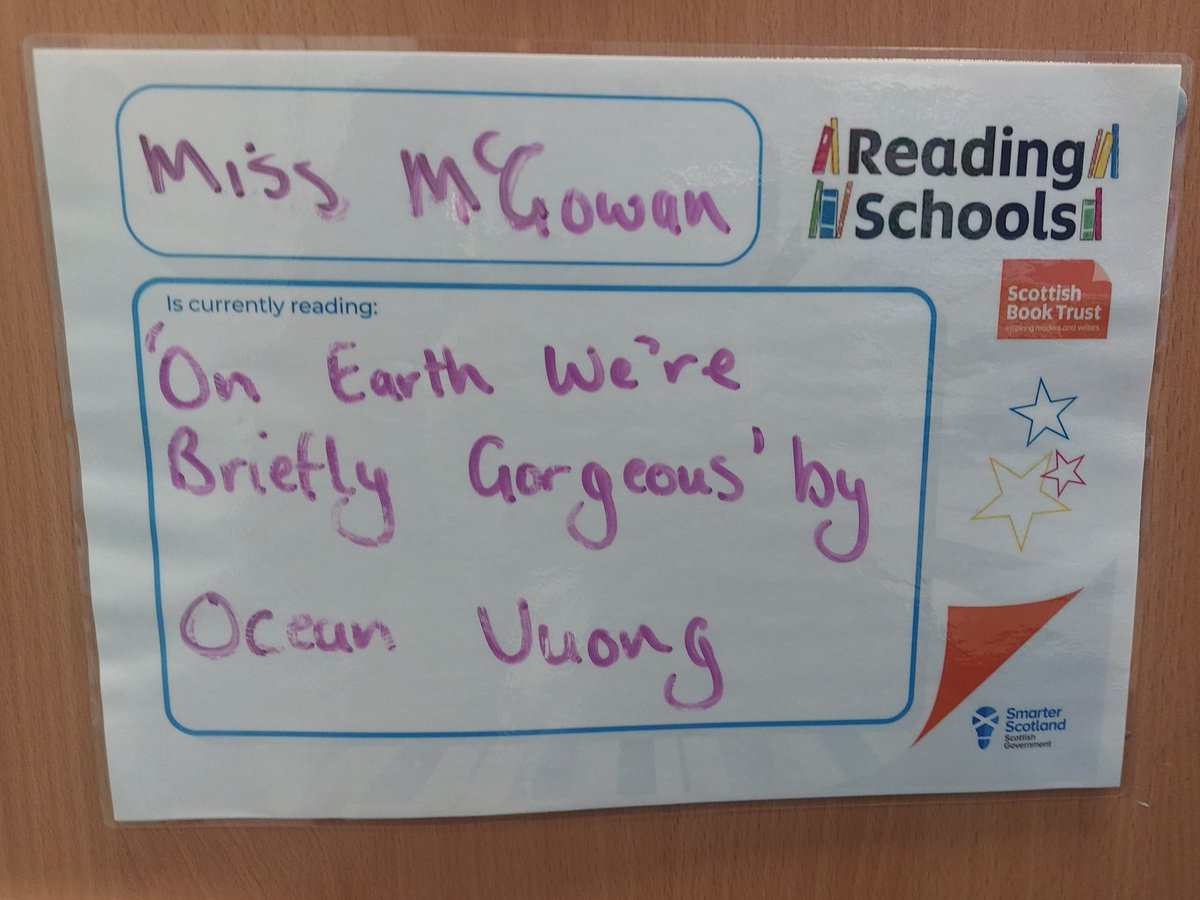 Miss McGowan
Reading
Schools
Scottish
Book Trust
inspiring readers and writers
Is currently reading:
'On Earth We're
Briefly Gorgeous' by
Ocean Vuong
Smarter
Scotland
Scottish
Government